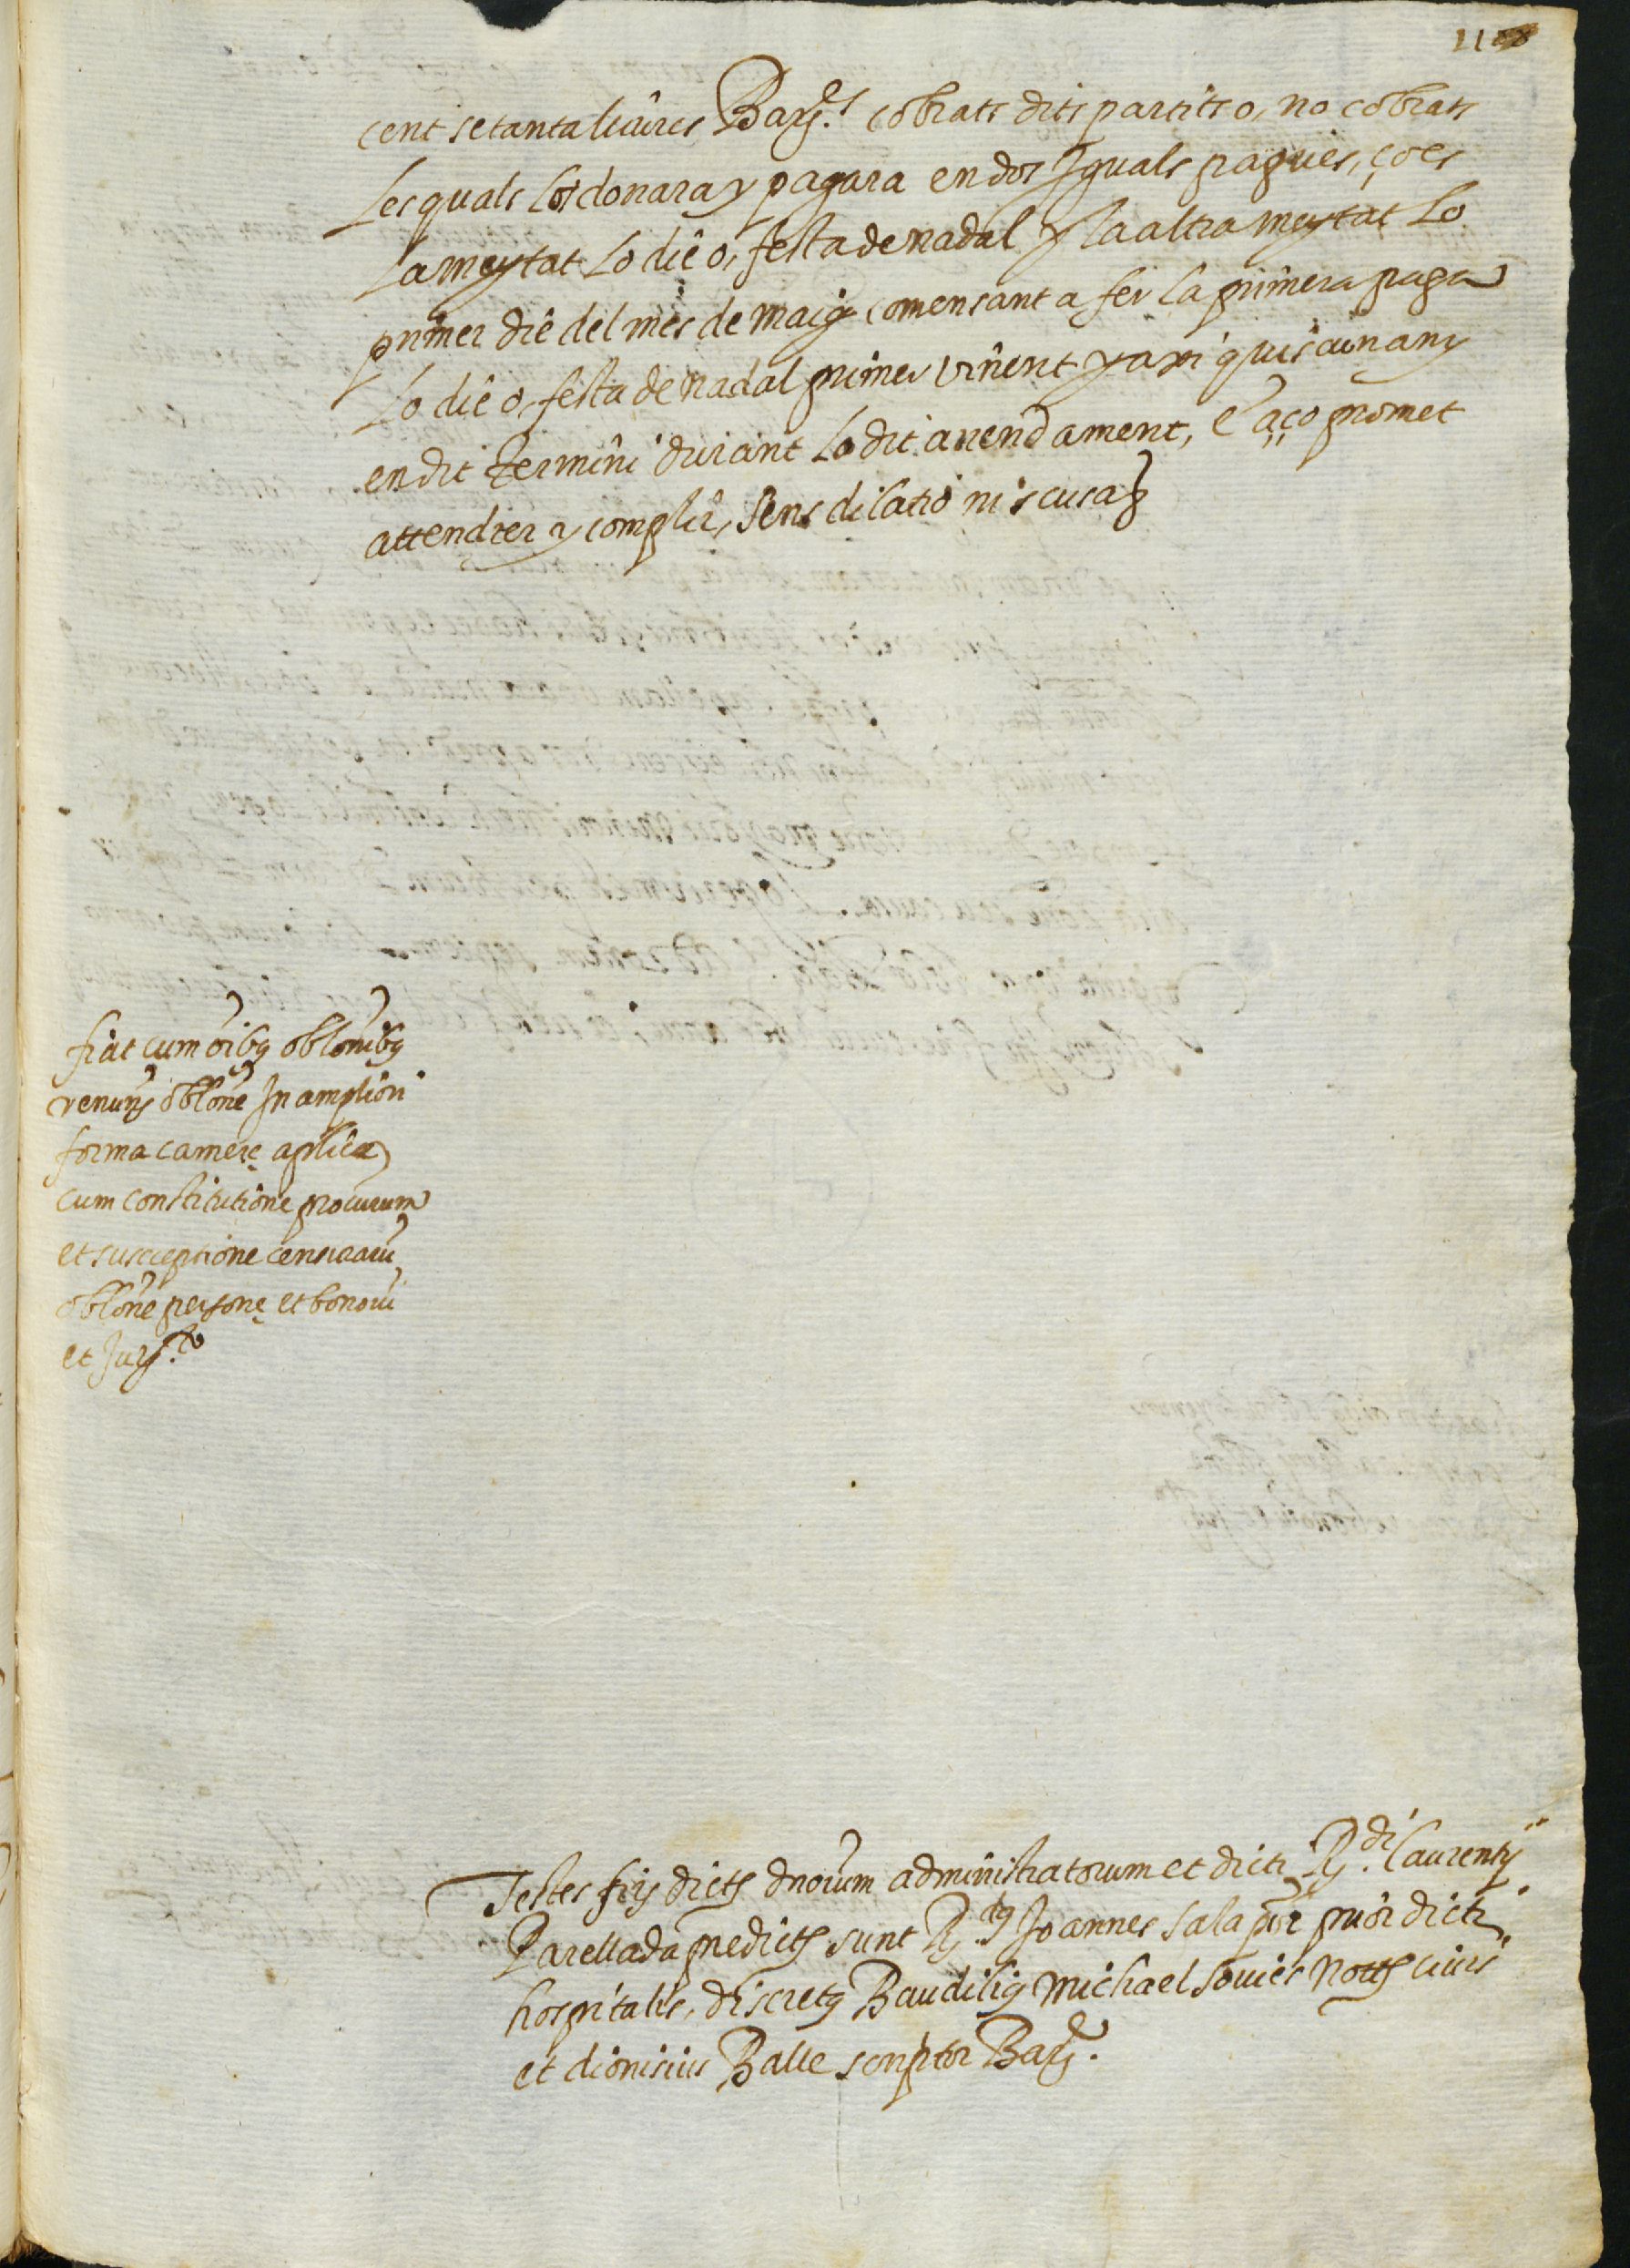 cent setanta liures Barꝫ.ˢ cobrats dits partits o, no cobrats
Les quals los donara y pagara en dos Iguals pagues, ço es
La meytat Lo die o, festa de nadal y la altra meytat Lo
primer die del mes de maig comensant a fer la primera paga
Lo die o, festa de nadal primer vinent y axi quiscun any
en dit termini durant Lo dit arrendament, e aço promet
attendrer y complir, sens dilatio ni scusaꝫ
fiat cum oibꝫ oblonibꝫ
renunỹ oblone In ampliori
forma camere aplica
cum constitutione procurum
et susceptione censuraru
oblone persone et bonoru
et Iurꝫ.ᵗᵒ
Testes firꝫ dictꝫ dnorum administratorum et dicti Rꝫ.ᵈⁱ Laurentij
Parellada predictꝫ sunt Rꝫ.ᵈꝫ Joannes sala pbr prior dicti
hospitalis, discretꝫ Baudiliꝫ Michael Sovies nottꝫ civis
et dionisius Balle scriptor Barꝫ.